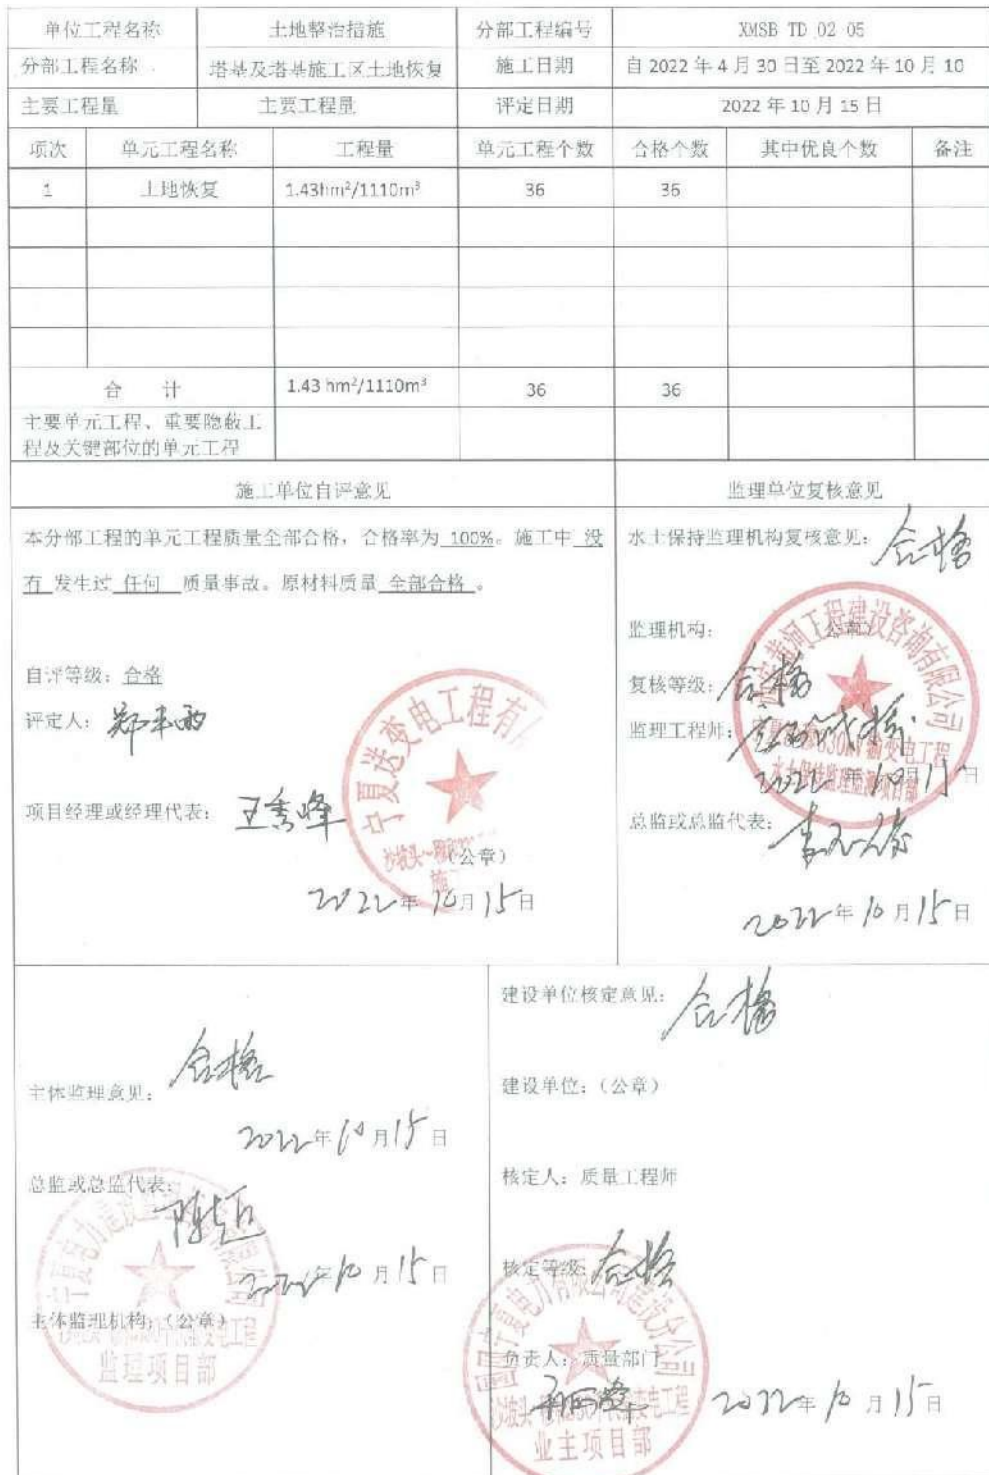 单位工程名称 土地整治措施 分部工程编号 XMSB TD 02 05
分部工程名称 塔基及塔基施工区土地恢复 施工日期 自 2022 年 4 月 30 日至 2022 年 10 月 10
主要工程量 主要工程量 评定日期 2022 年 10 月 15 日
项次 单元工程名称 工程量 单元工程个数 合格个数 其中优良个数 备注
1 土地恢复 1.43hm²/1110m³ 36 36
合 计 1.43 hm²/1110m³ 36 36
主要单元工程、重要隐蔽工
程及关键部位的单元工程
施工单位自评意见
本分部工程的单元工程质量全部合格，合格率为 100%。施工中 没
有 发生过 任何 质量事故。原材料质量 全部合格 。
自评等级：合格
评定人：
项目经理或经理代表：王秀峰
宁夏送变电工程有
（公章）
2022年 10月 15日
监理单位复核意见
水土保持监理机构复核意见：合格
监理机构： （公章）
河工程建设咨询有限公司
复核等级：合格
监理工程师：
变电工程
水土保持监理
2022 年 10月 15日
总监或总监代表：
2022年 10 月 15日
主体监理意见：合格
2022年 10 月 15 日
总监或总监代表：陈超
2022年 10 月 15 日
主体监理机构：（公章）
监理项目部
建设单位核定意见：合格
建设单位：（公章）
核定人：质量工程师
核定等级：合格
国网宁夏电力有限公司建设分公司
负责人：质量部门
业主项目部
2022年 10 月 15日